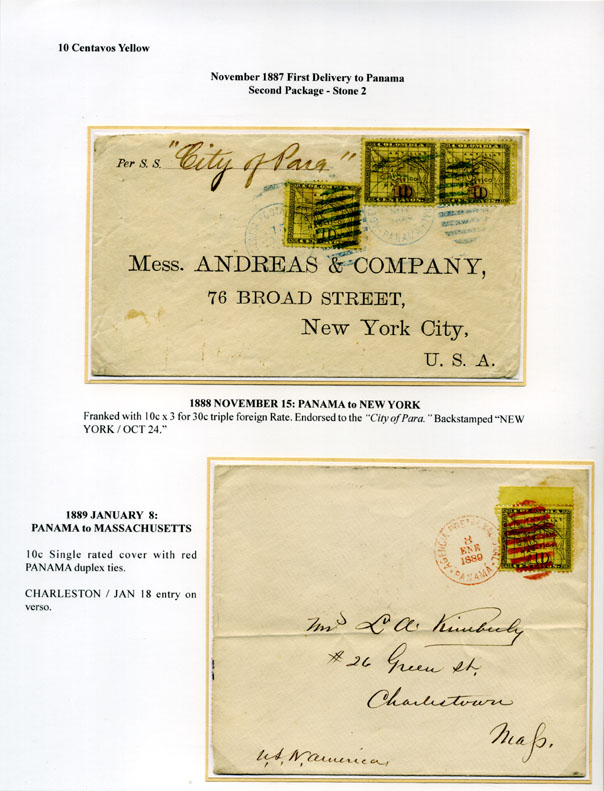 10 Centavos Yellow
November 1887 First Delivery to Panama
Second Package - Stone 2
Per S. S. "City of Para"
COLOMBIA
10
CENTAVOS
COLOMBIA
10
CENTAVOS
COLOMBIA
10
CENTAVOS
PANAMA
Mess. ANDREAS & COMPANY,
76 BROAD STREET,
New York City,
U. S. A.
1888 NOVEMBER 15: PANAMA to NEW YORK
Franked with 10c x 3 for 30c triple foreign Rate. Endorsed to the "City of Para." Backstamped "NEW
YORK / OCT 24."
1889 JANUARY 8:
PANAMA to MASSACHUSETTS
10c Single rated cover with red
PANAMA duplex ties.
CHARLESTON / JAN 18 entry on
verso.
AGENCIA POSTAL NACIONAL
8
ENE
1889
PANAMA
COLOMBIA
10
CENTAVOS
Mrs L A. Kimberly
# 26 Green St.
Charlestown
Mass.
U.S. N. America,